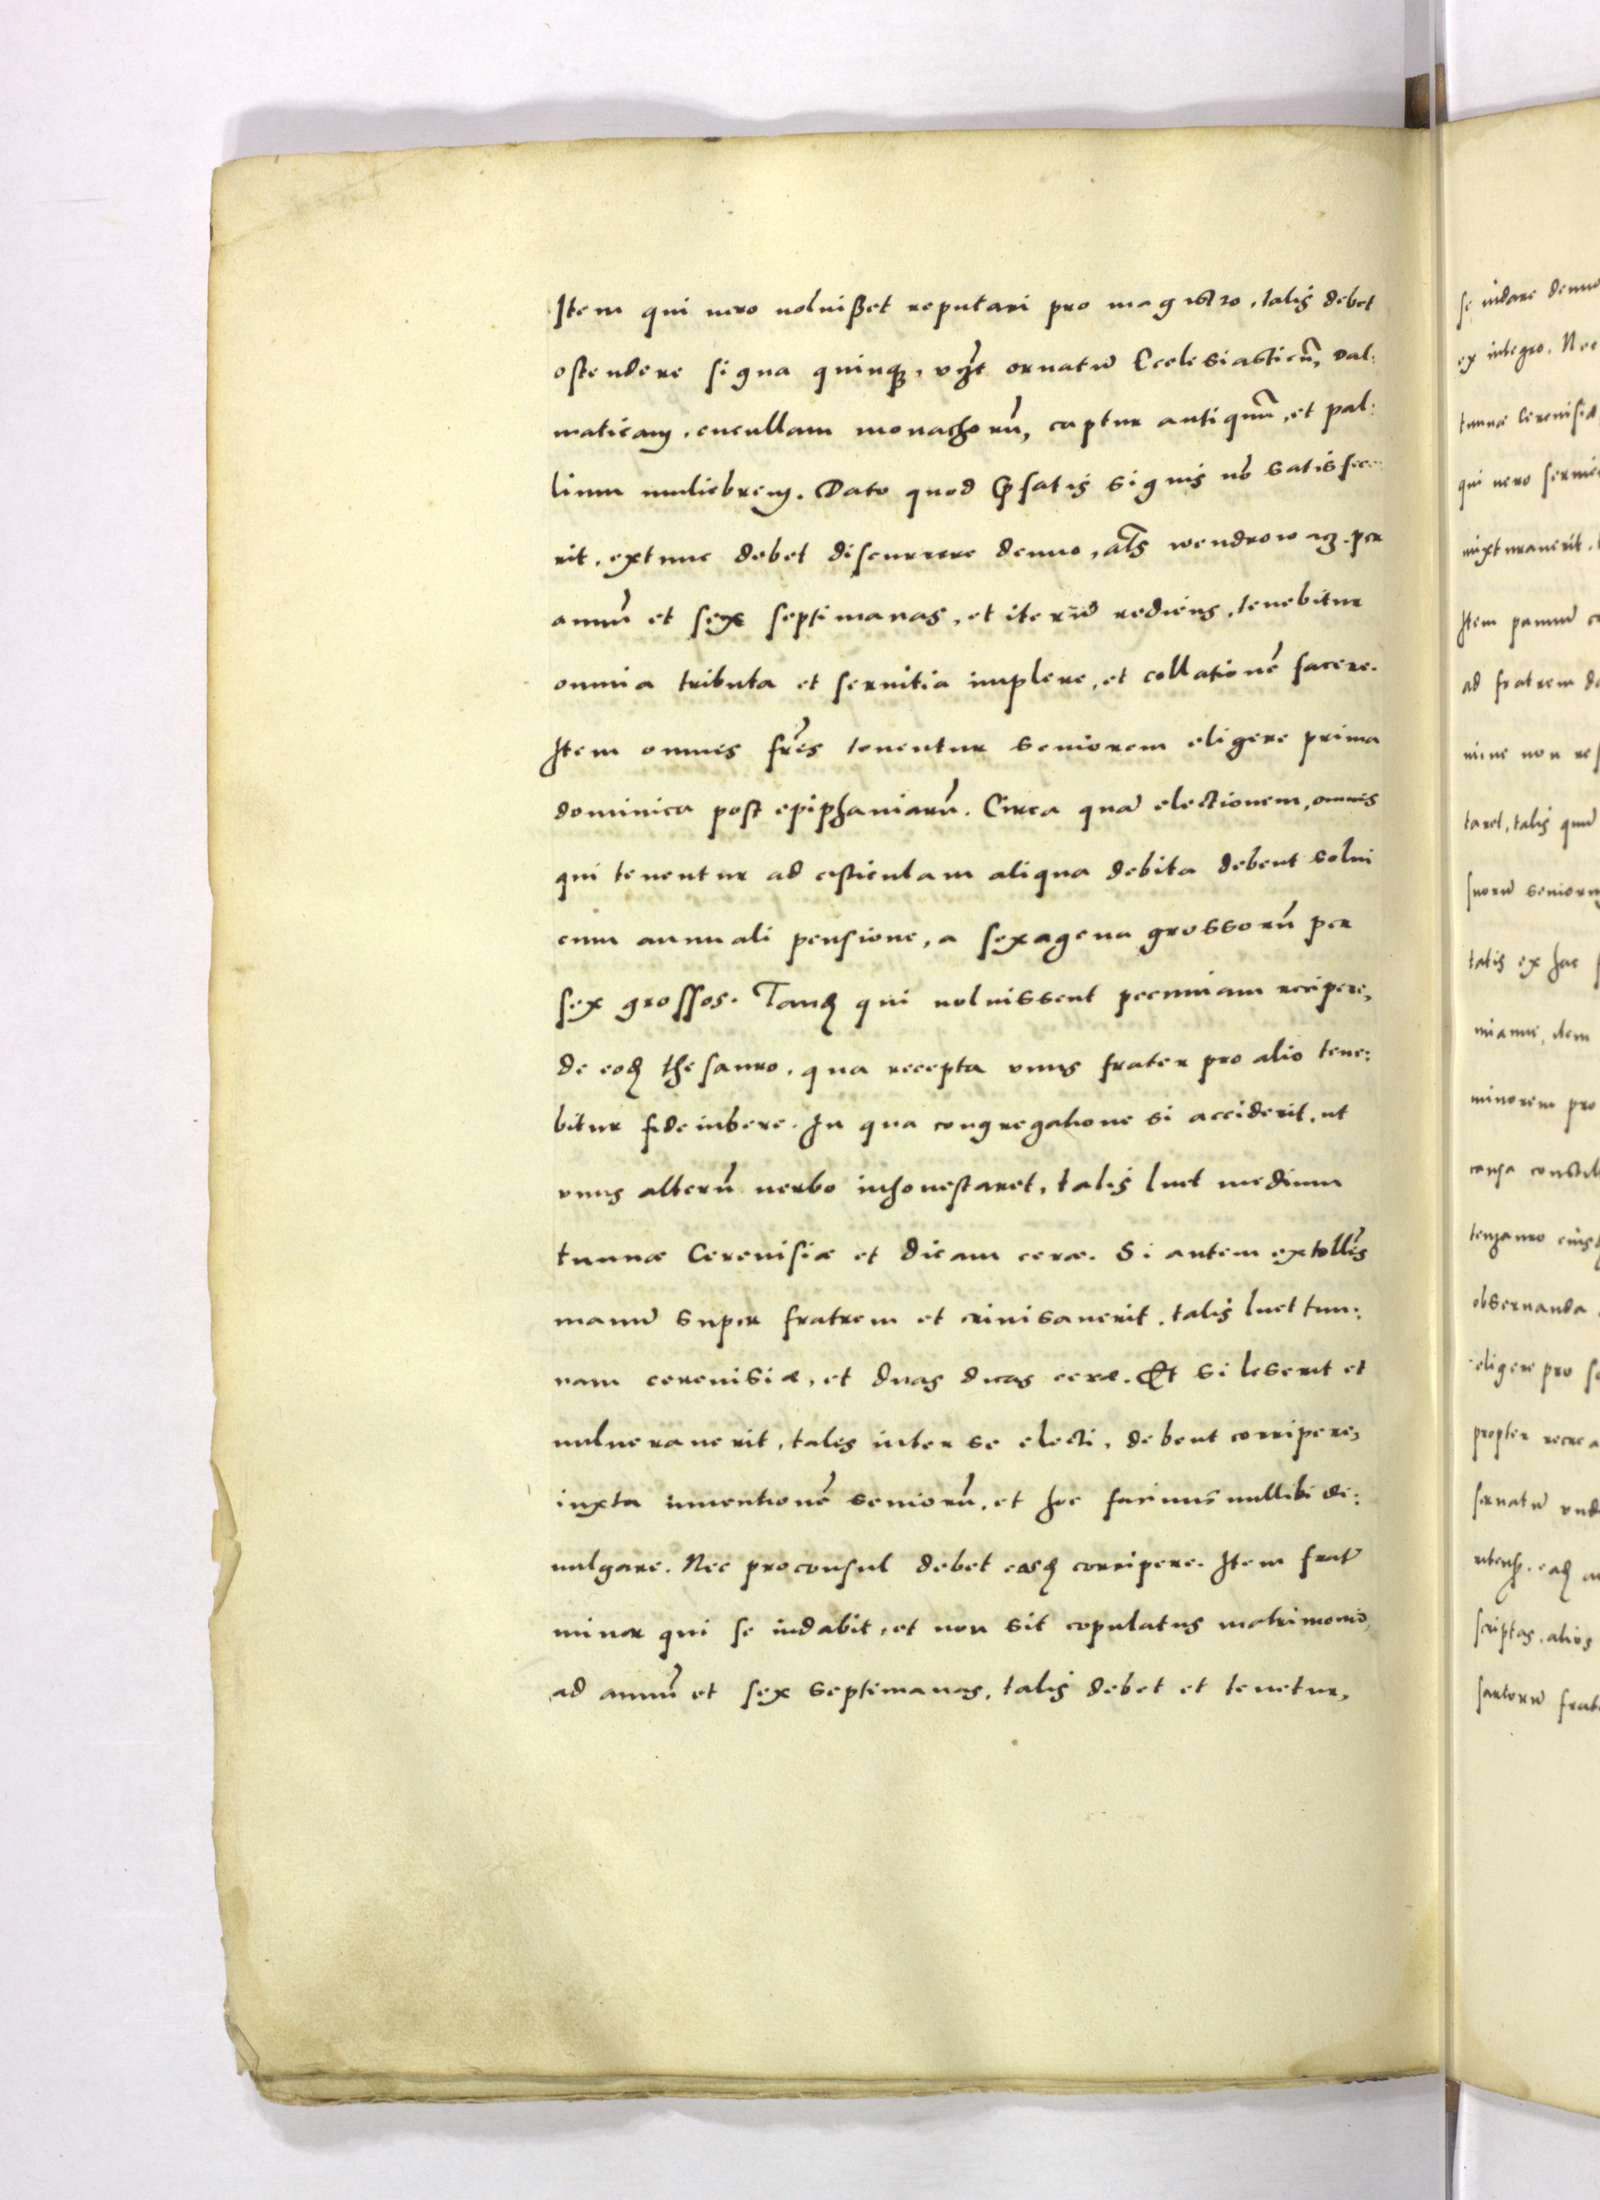 Item qui uero uoluißet reputari pro magistro, talis debet
ostendere signa quinq3, vꝫt ornatū Ecclesiasticū, dal:
maticam, cucullam monachorū, captur antiquū, et pal:
lium muliebrem. Dato quod p̄fatis signis nō satisfece:
rit, extunc debet discurrere denuo, als wendrowacz per
annū et sex septimanas, et iterū rediens, tenebitur
omnia tributa et seruitia implere, et collationē facere.
Item omnes frēs tenentur seniorem eligere prima
dominica post epiphaniarū. Circa quā electionem, omnes
qui tenentur ad cisticulam aliqua debita debent solui
cum annuali pensione, a sexagena grossorū per
sex grossos. Tandꝫ qui uoluissent pecuniam recipere,
de eodꝫ thesauro, qua recepta vnus frater pro alio tene:
bitur fideiubere. In qua congregatione si acciderit, ut
vnus alterū uerbo inhonestaret, talis luet medium
tunnæ Cereuisiæ et dicam ceræ. Si autem extollēs
manū super fratrem et crinisauerit, talis luet tun:
nam cereuisiæ, et duas dicas ceræ. Et si leserit et
uulnerauerit, tales inter se electi, debent corripere,
iuxta inuentionē seniorū, et hoc facinus nullibi di:
uulgare. Nec proconsul debet eosdꝫ corripere. Item frat̄
minor qui se indabit, et non sit copulatus matrimonio,
ad annū et sex septimanas, talis debet et tenetur,
se indare denuo
ex integro. Nec
tunnæ Cereuisiæ
qui uero
mixturauerit,
Item pannū
ad fratrem
non
taret, talis
suorū
tatis ex hac
minorem pro
causa
obseruanda
eligere pro
propter
seruatū
scriptas, alios
sartorū